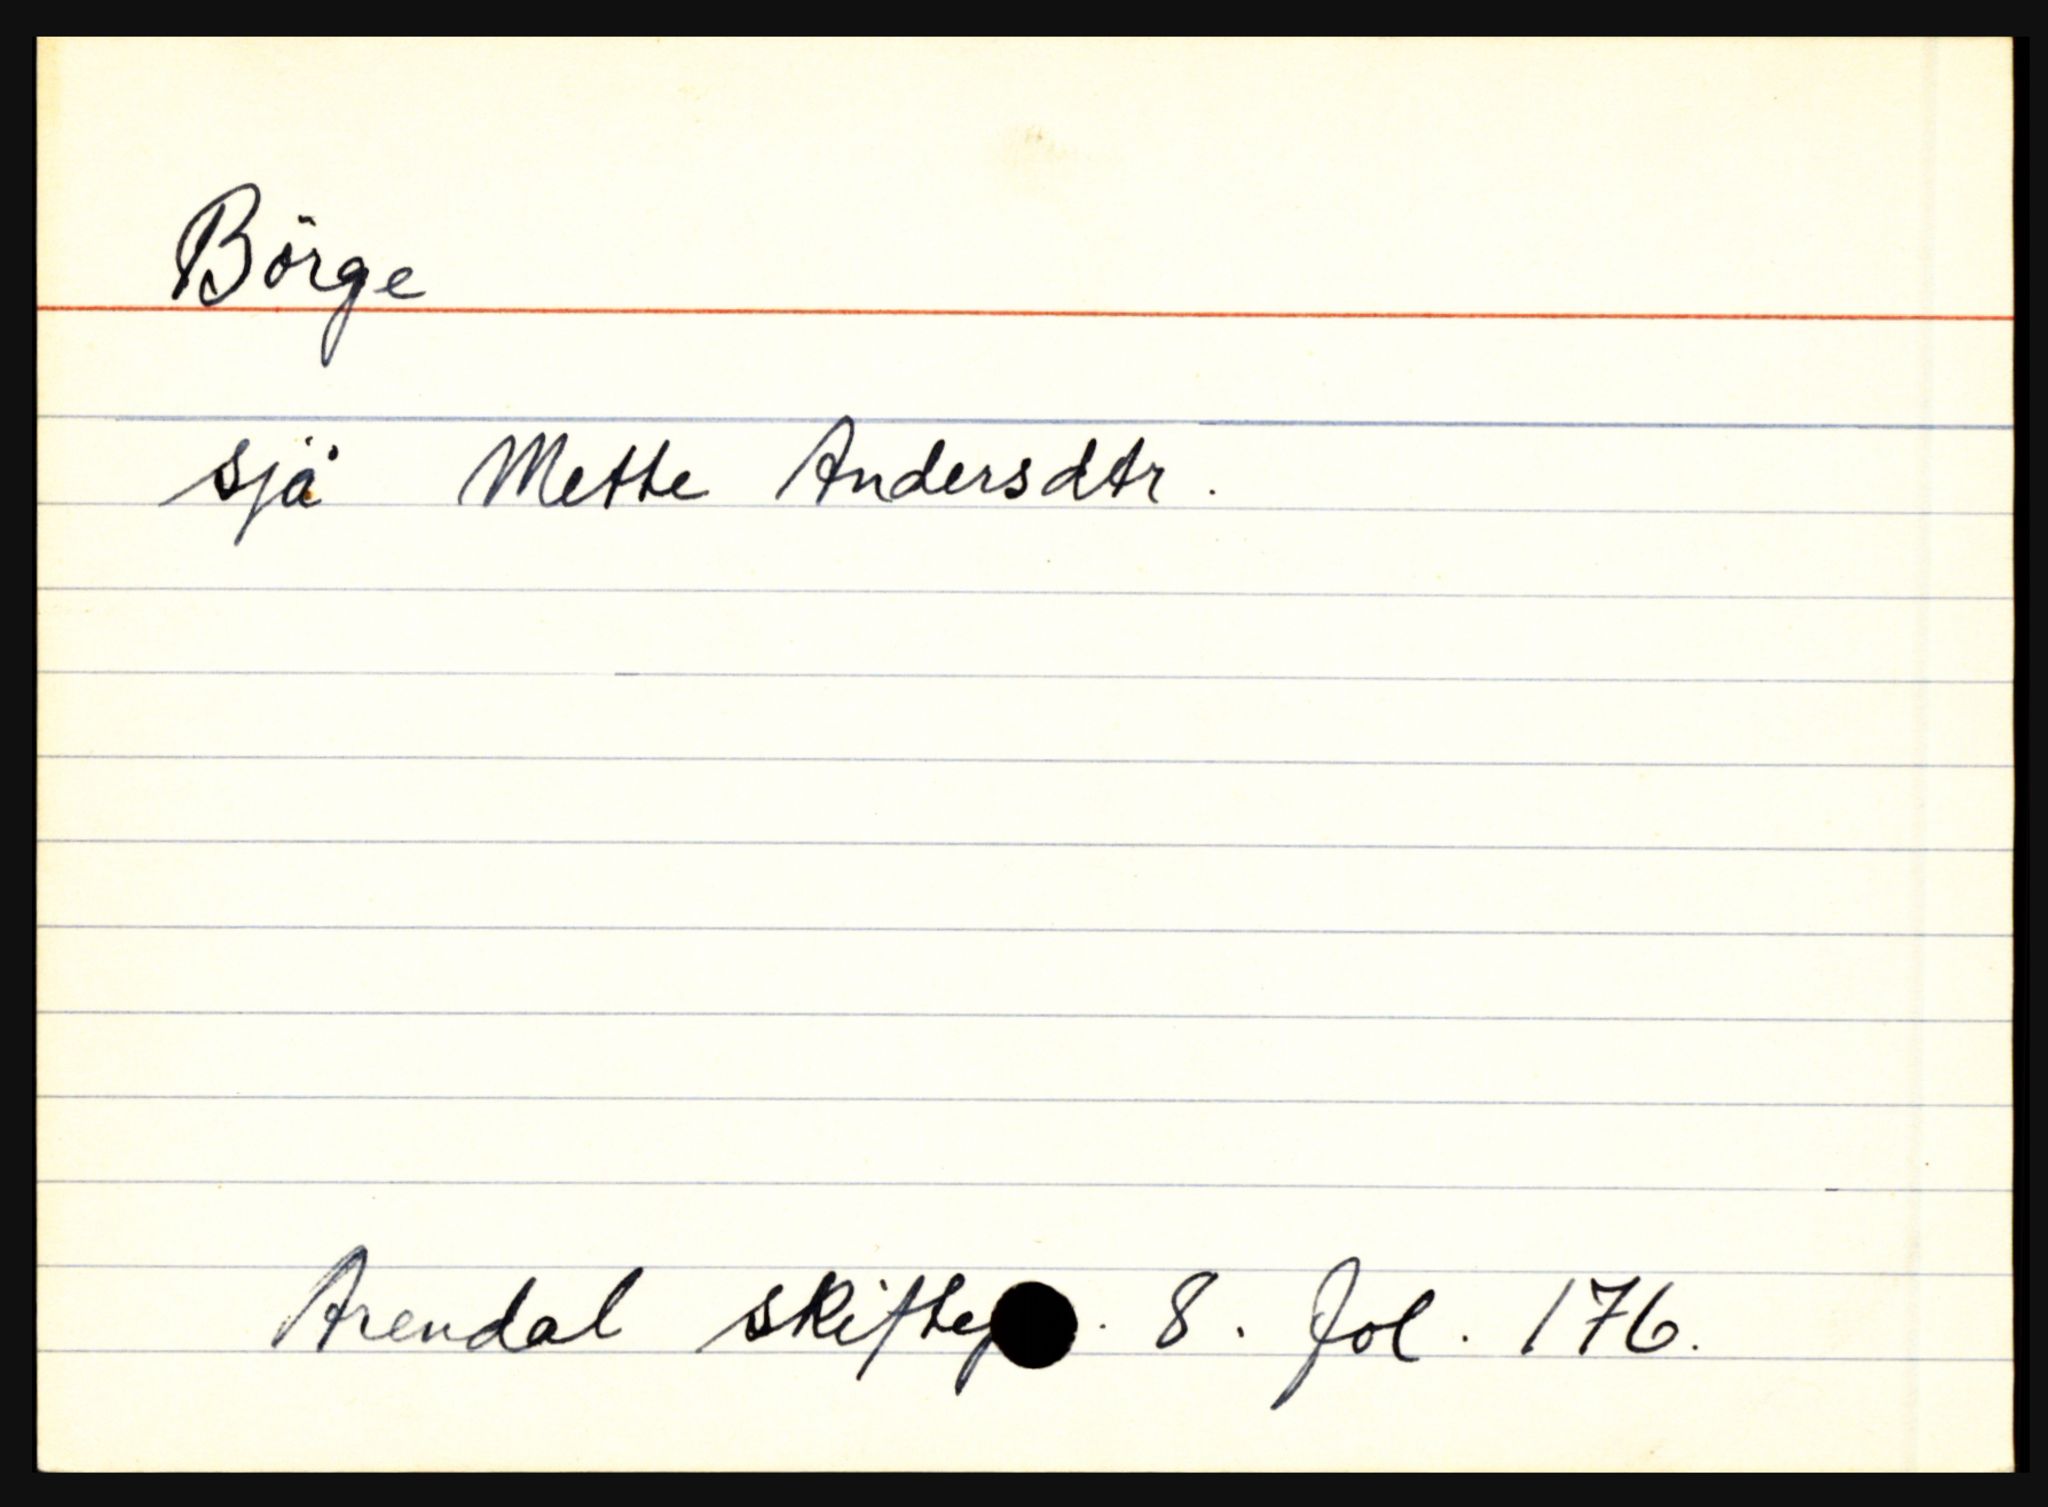 Börge
sjå Mette Andersdtr.
Arendal 8. fol. 176.